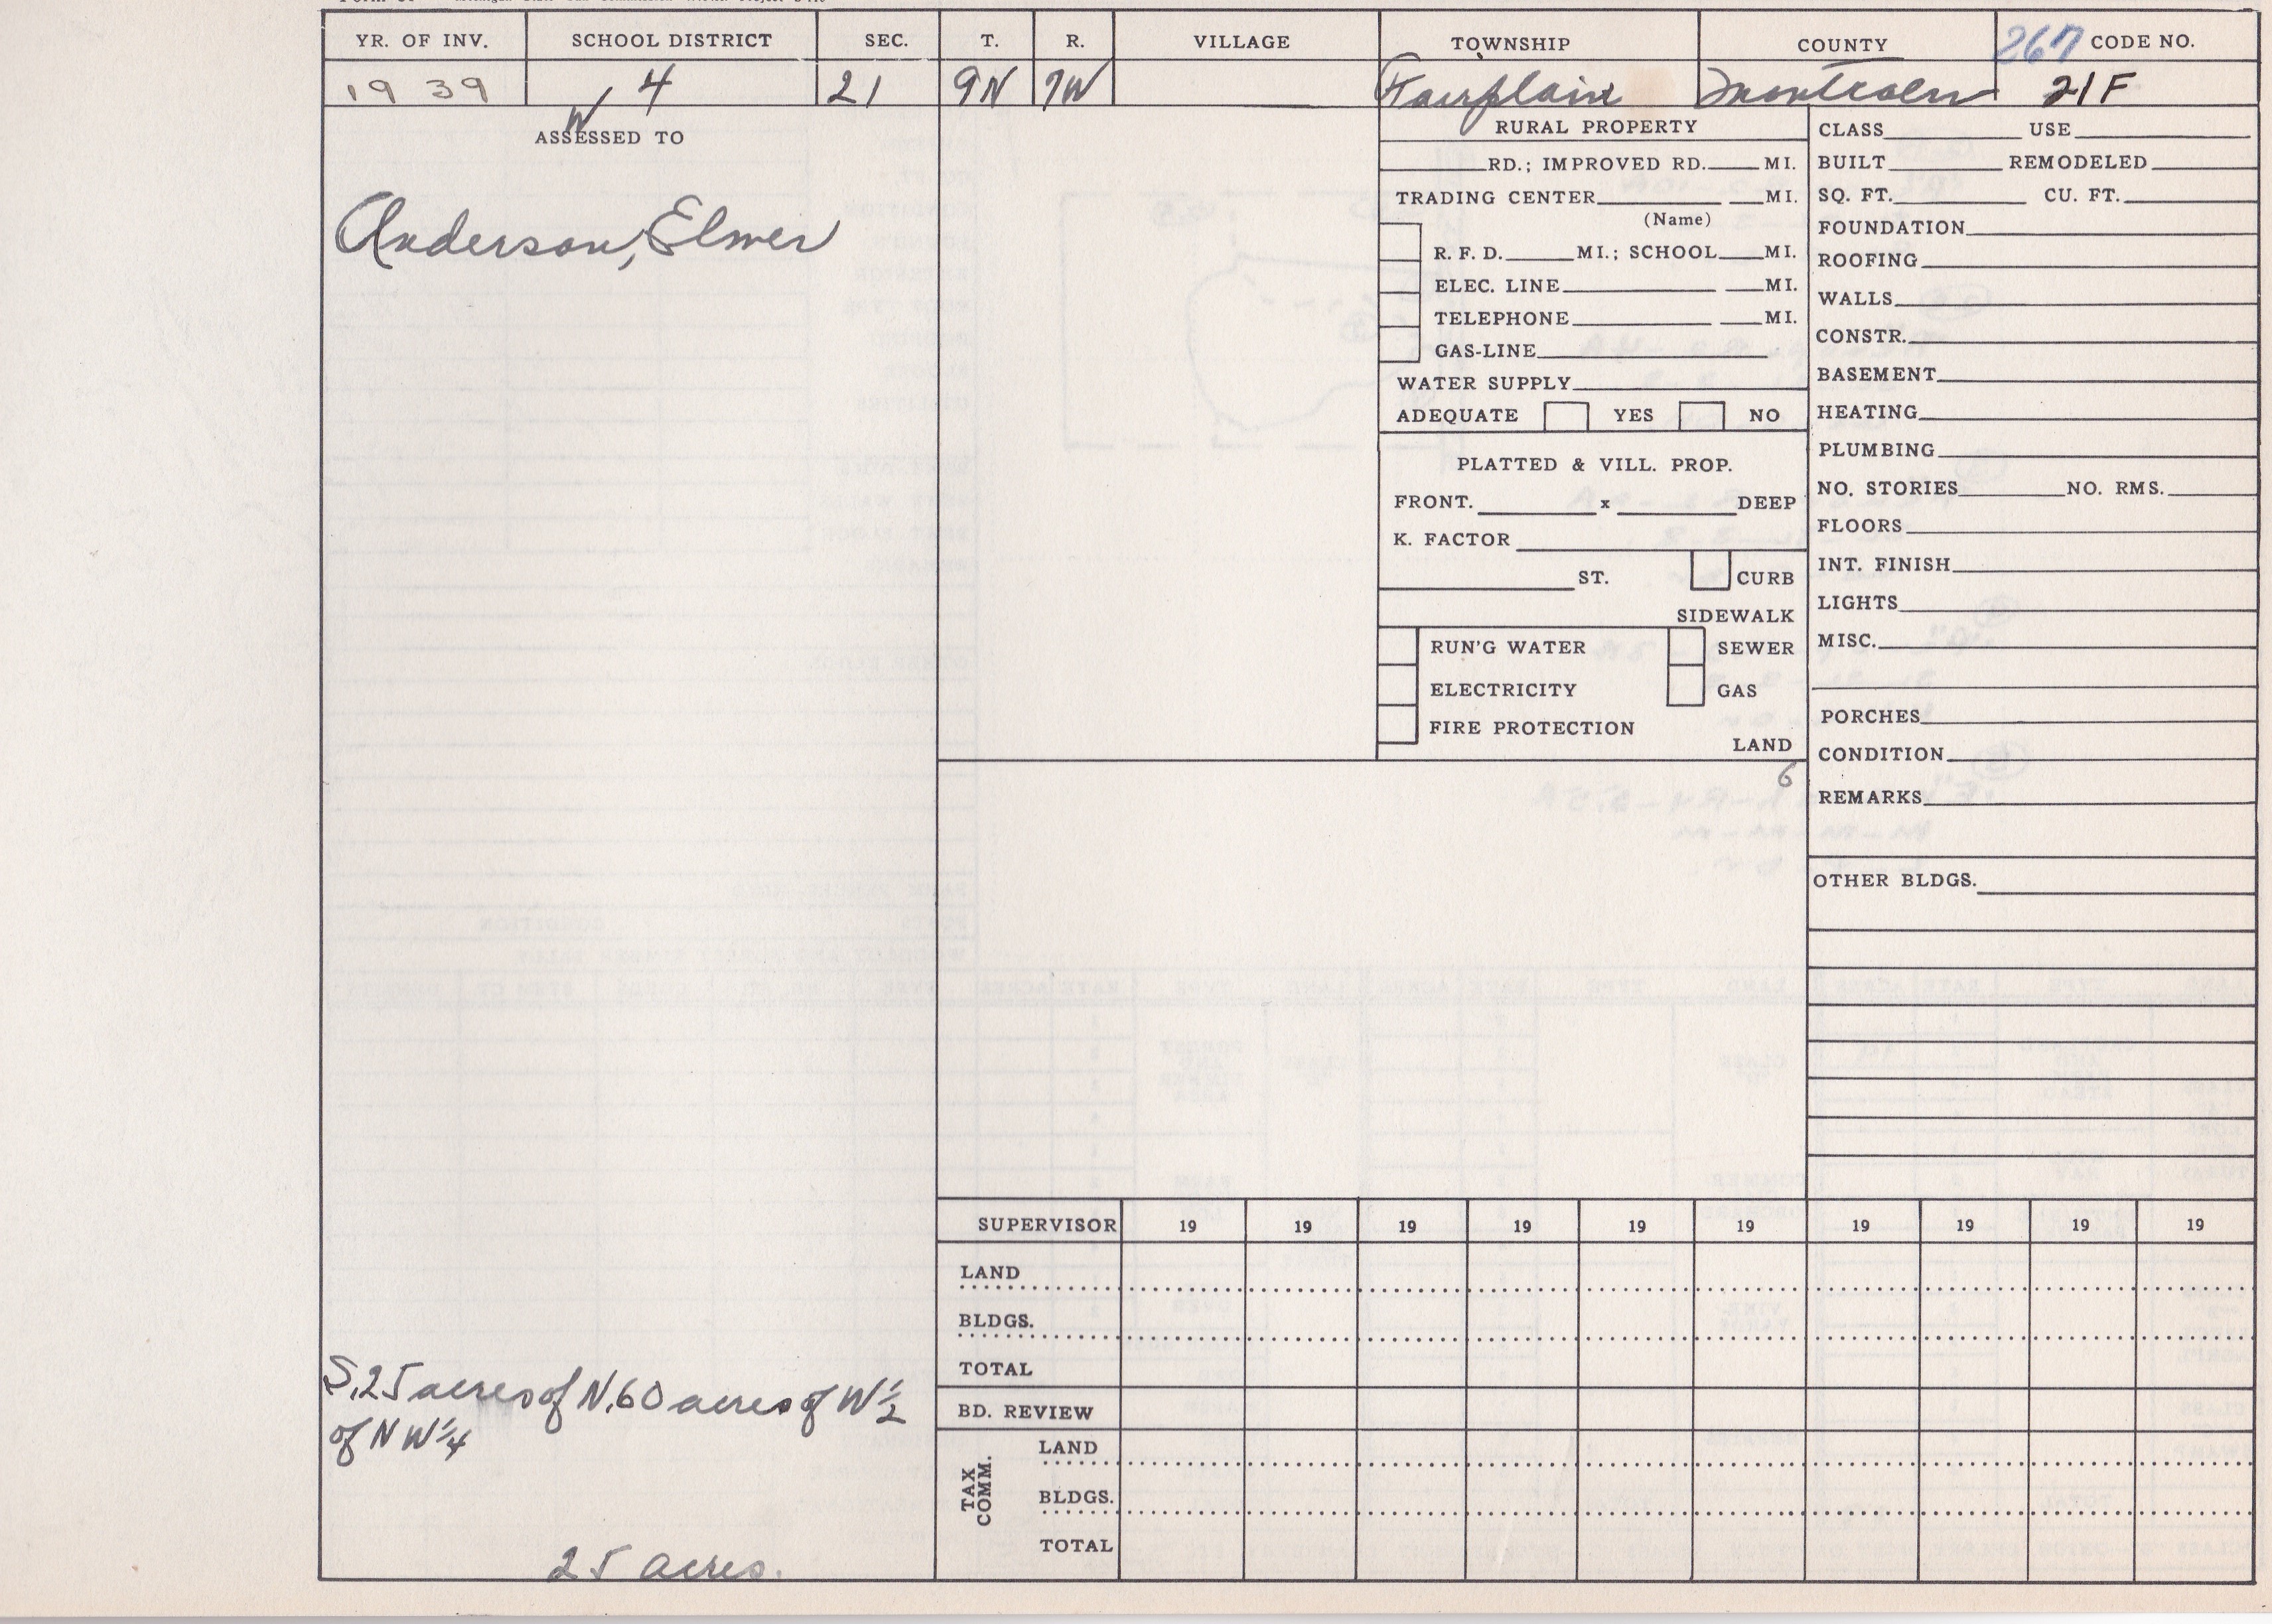 YR. OF INV. SCHOOL DISTRICT SEC. T. R. VILLAGE TOWNSHIP COUNTY 267 CODE NO.
1939 4 21 9N 7W Fairplain Montcalm 21F
W
ASSESSED TO
Anderson, Elmer
S. 25 acres of N. 60 acres of W 1/2
of N W 1/4
25 acres.
RURAL PROPERTY
RD.; IMPROVED RD. MI.
TRADING CENTER MI.
(Name)
R. F. D. MI.; SCHOOL MI.
ELEC. LINE MI.
TELEPHONE MI.
GAS-LINE
WATER SUPPLY
ADEQUATE YES NO
PLATTED & VILL. PROP.
FRONT. x DEEP
K. FACTOR
ST. CURB
SIDEWALK
RUN'G WATER SEWER
ELECTRICITY GAS
FIRE PROTECTION
LAND
6
CLASS USE
BUILT REMODELED
SQ. FT. CU. FT.
FOUNDATION
ROOFING
WALLS
CONSTR.
BASEMENT
HEATING
PLUMBING
NO. STORIES NO. RMS.
FLOORS
INT. FINISH
LIGHTS
MISC.
PORCHES
CONDITION
REMARKS
OTHER BLDGS.
SUPERVISOR 19 19 19 19 19 19 19 19 19 19
LAND
BLDGS.
TOTAL
BD. REVIEW
TAX COMM.
LAND
BLDGS.
TOTAL